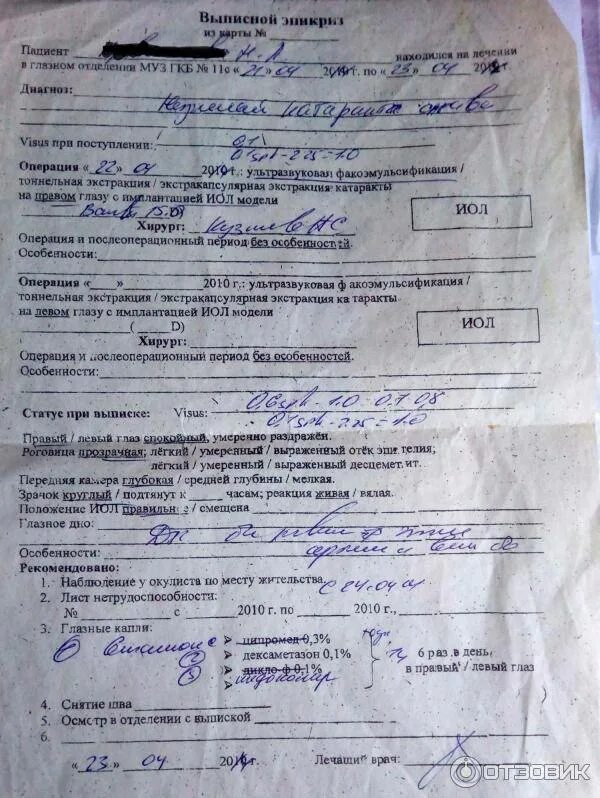 Выписной эпикриз
из карты №
Пациент Н.Л находился на лечении
в глазном отделении МУЗ ГКБ № 11с «21» 04 201 г. по «23» 04 201 г.
Диагноз:
катаракта
Visus при поступлении: 0,1
0,1 sph -2.25 =1.0
Операция «22» 04 201 г.: ультразвуковая факоэмульсификация /
тоннельная экстракция / экстракапсулярная экстракция катаракты
на правом глазу с имплантацией ИОЛ модели
ИОЛ
Хирург:
Операция и послеоперационный период без особенностей.
Особенности:
Операция «___» 2010 г.: ультразвуковая ф акоэмульсификация /
тоннельная экстракция / экстракапсулярная экстракция ка таракты
на левом глазу с имплантацией ИОЛ модели
( D)
ИОЛ
Хирург:
Операция и послеоперационный период без особенностей.
Особенности:
0,6 sph -1.0 -0.7-0.8
Статус при выписке: Visus: 0,1 sph -2.25 =1.0
Правый / левый глаз спокойный, умеренно раздражён.
Роговица прозрачная; лёгкий / умеренный / выраженный отёк эпи телия;
лёгкий / умеренный / выраженный десцемет.ит.
Передняя камера глубокая / средней глубины / мелкая.
Зрачок круглый / подтянут к ___ часам; реакция живая / вялая.
Положение ИОЛ правильное / смещена
Глазное дно:
Особенности:
Рекомендовано:
1. Наблюдение у окулиста по месту жительства с 24.04
2. Лист нетрудоспособности:
№ с 2010 г. по 2010 г.,
3. Глазные капли:
ципромед 0,3%
дексаметазон 0,1%
дикло-ф 0,1%
6 раз в день
в правый / левый глаз
4. Снятие шва
5. Осмотр в отделении с выпиской
6.
«23» 04 201 г. Лечащий врач:
ОТЗОВИК